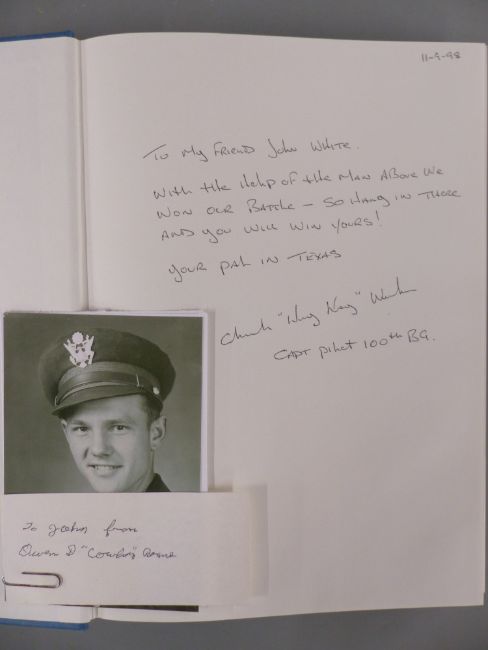 11-9-98
To My Friend John White.
With the Help of the Man Above We
Won our Battle – so Hang in There
and you will win yours!
your pal in Texas
Chuck
Capt pilot 100th BG.
To John from
Owen D "Cowboy" Roane